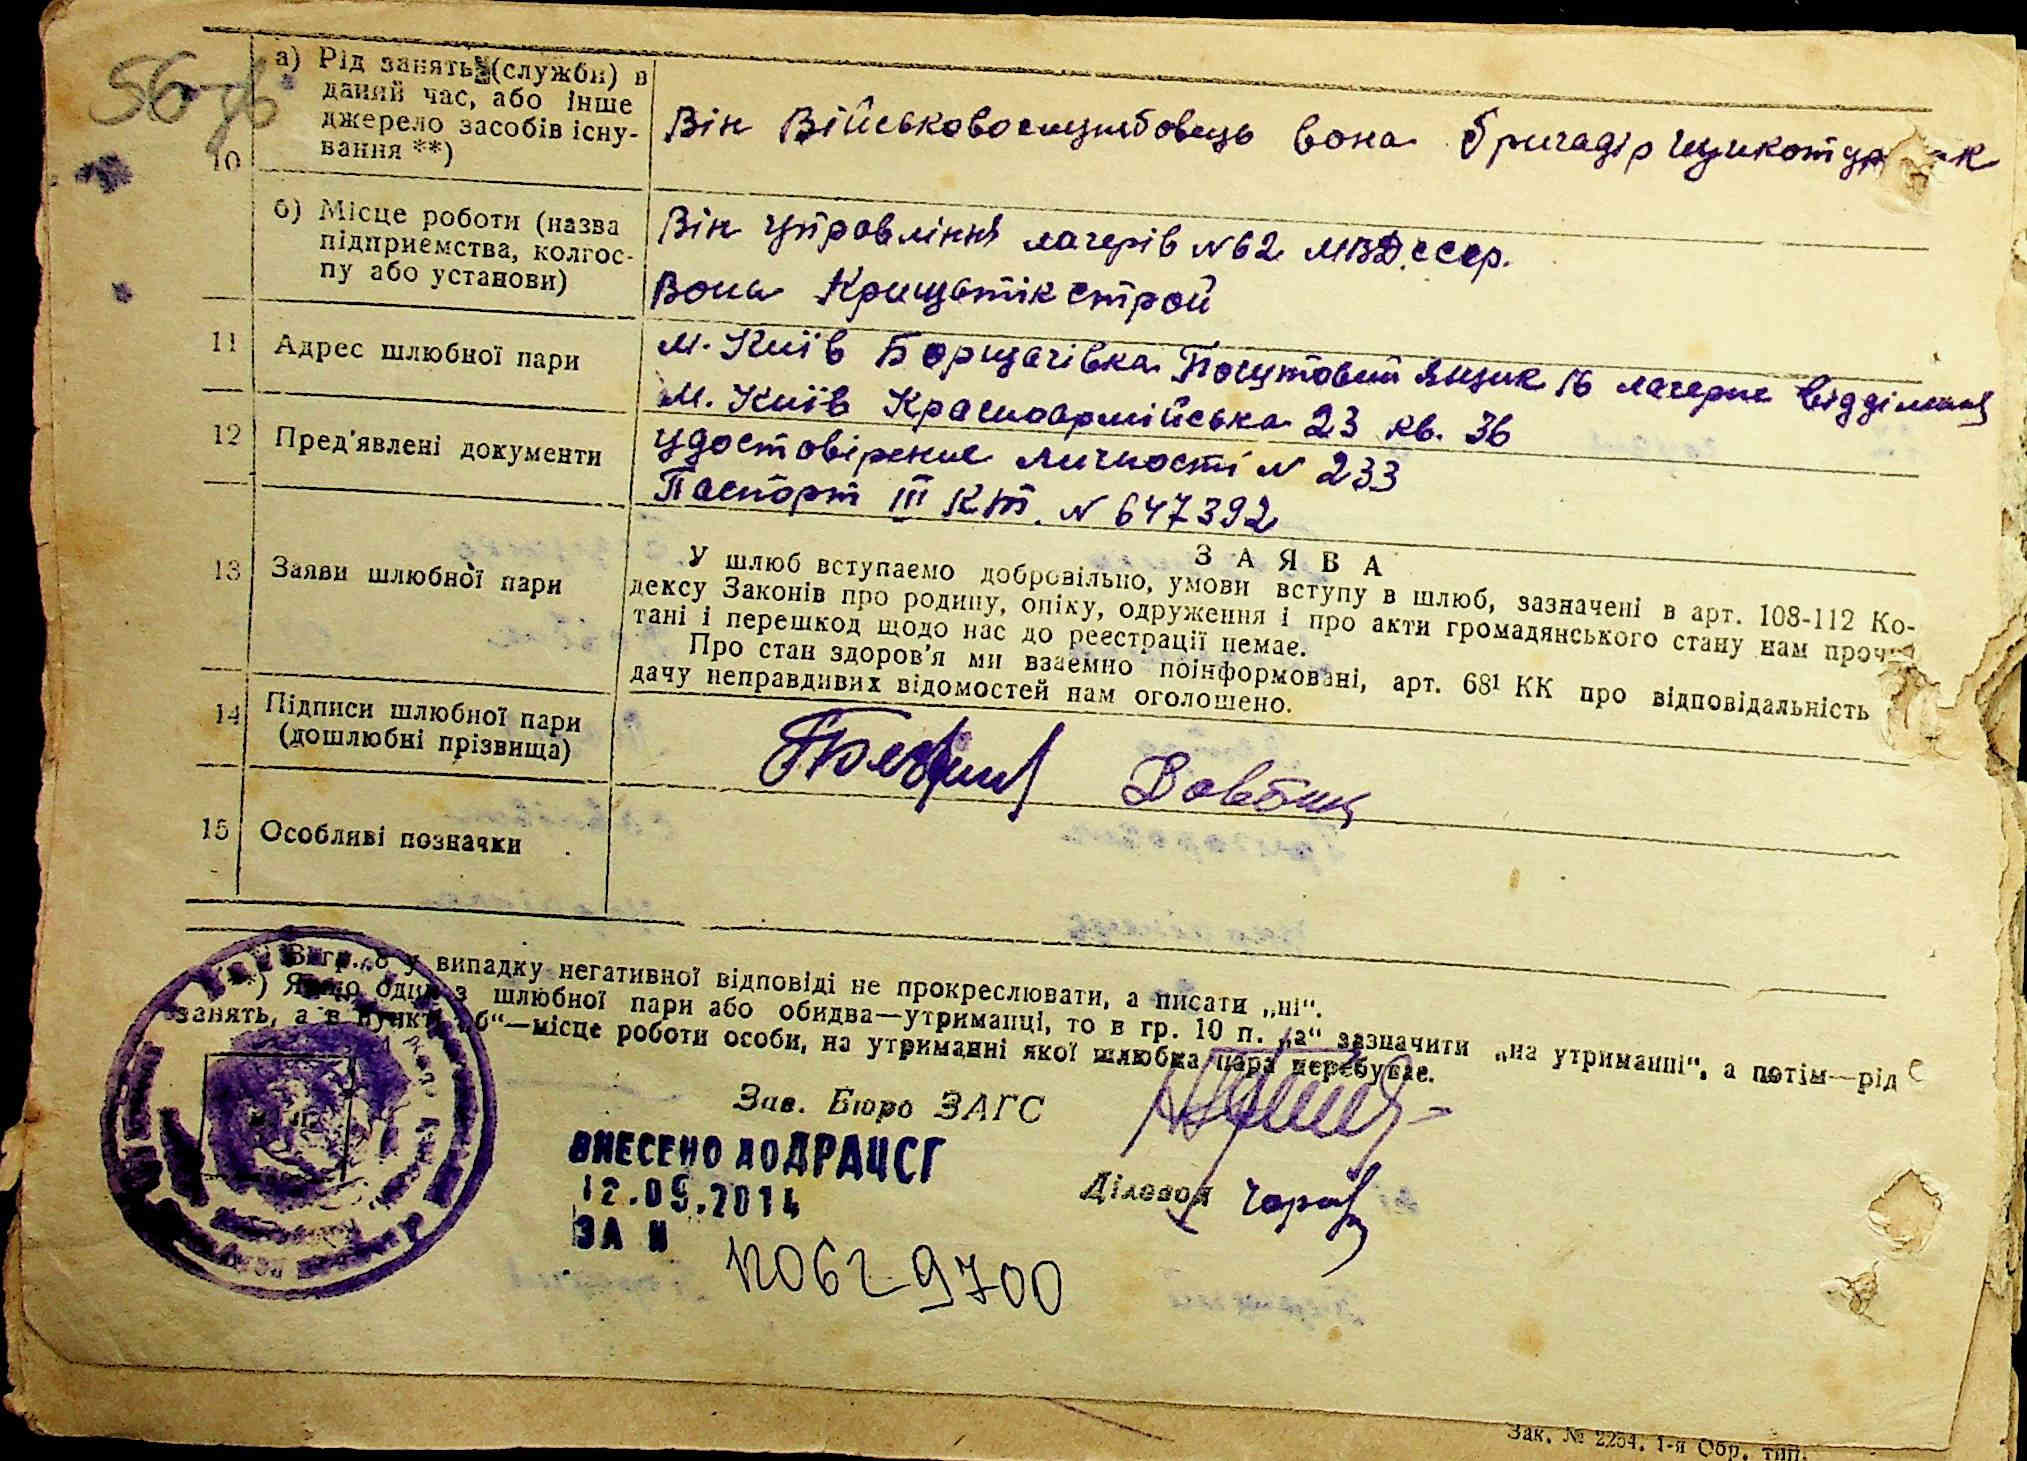 56
10
а) Рід занять (служби) в
даний час, або інше
джерело засобів існу-
вання **)
Він Військовослужбовець вона бригадір
б) Місце роботи (назва
підприємства, колгос-
пу або установи)
Він Управління лагерів №62 МВД СССР.
Вона Крищатікстрой
11 Адрес шлюбної пари
м. Київ Борщагівка Поштовий ящик 16 лагерне відділення
м. Київ Красноармійська 23 кв. 36
12 Пред'явлені документи
Удостовірение личності № 233
Паспорт III КТ. № 647392
13 Заяви шлюбної пари
ЗАЯВА
У шлюб вступаємо добровільно, умови вступу в шлюб, зазначені в арт. 108-112 Ко-
дексу Законів про родину, опіку, одруження і про акти громадянського стану нам прочи-
тані і перешкод щодо нас до реєстрації немає.
Про стан здоров'я ми взаємно поінформовані, арт. 68¹ КК про відповідальність
дачу неправдивих відомостей нам оголошено.
14 Підписи шлюбної пари
(дошлюбні прізвища)
Довбиш
15 Особливі позначки
В гр. 8 у випадку негативної відповіді не прокреслювати, а писати „ні“.
**) Якщо один з шлюбної пари або обидва—утриманці, то в гр. 10 п. „а“ зазначити „на утриманні“, а потім—рід
занять, а в пункті „б“—місце роботи особи, на утриманні якої шлюбна пара перебуває.
Зав. Бюро ЗАГС
ВНЕСЕНО ДО ДРАЦСГ
12.09.2014
ЗА N
Діловод
12062 9700
Зак. № 2254. 1-я Обр. тип.